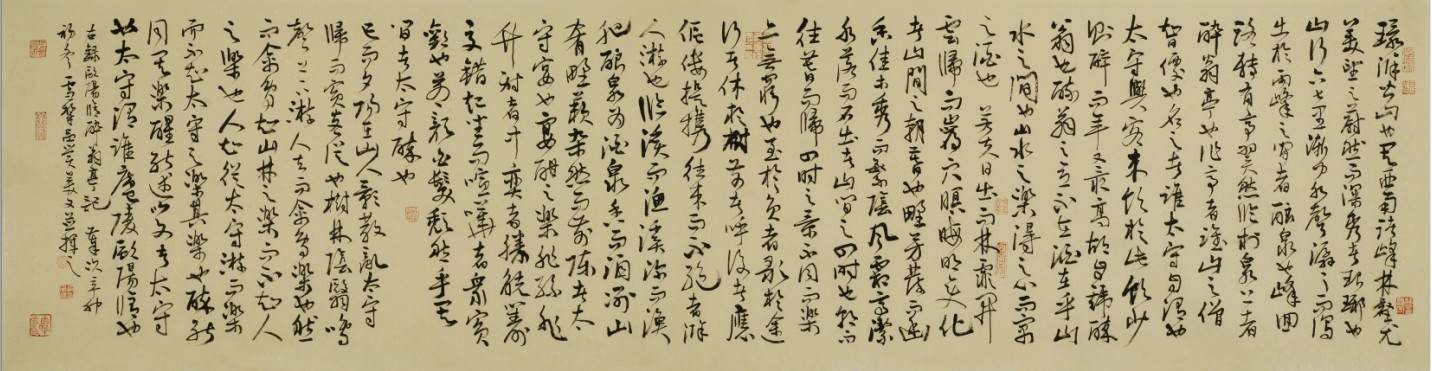 環滁皆山也其西南諸峰林壑尤
美望之蔚然而深秀者瑯琊也
山行六七里漸聞水聲潺潺而瀉
出於兩峰之間者釀泉也峰回
路轉有亭翼然臨於泉上者
醉翁亭也作亭者誰山之僧
智僊也名之者誰太守自謂也
太守與客來飲於此飲少
則醉而年又最高故自號醉
翁也醉翁之意不在酒在乎山
水之間也山水之樂得之心而寓
之酒也 若夫日出而林霏開
雲歸而巖穴暝晦明變化
者山間之朝暮也野芳發而幽
香佳木秀而繁陰風霜高潔
水落而石出者山間之四時也朝而
往暮而歸四時之景不同而樂
亦無窮也至於負者歌於途
行者休於樹前者呼後者應
傴僂提攜往來而不絕者滁
人遊也臨溪而漁溪深而魚
肥釀泉為酒泉香而酒洌山
肴野蔌雜然而前陳者太
守宴也宴酣之樂非絲非
竹射者中奕者勝觥籌
交錯起坐而喧嘩者眾賓
歡也蒼顏白髮頹然乎其
間者太守醉也
已而夕陽在山人影散亂太守
歸而賓客從也樹林陰翳鳴
聲上下遊人去而禽鳥樂也然
而禽鳥知山林之樂而不知人
之樂也人知從太守遊而樂
而不知太守之樂其樂也醉能
同其樂醒能述以文者太守
也太守謂誰廬陵歐陽修也
錄歐陽修醉翁亭記 歲次辛卯
初冬雪